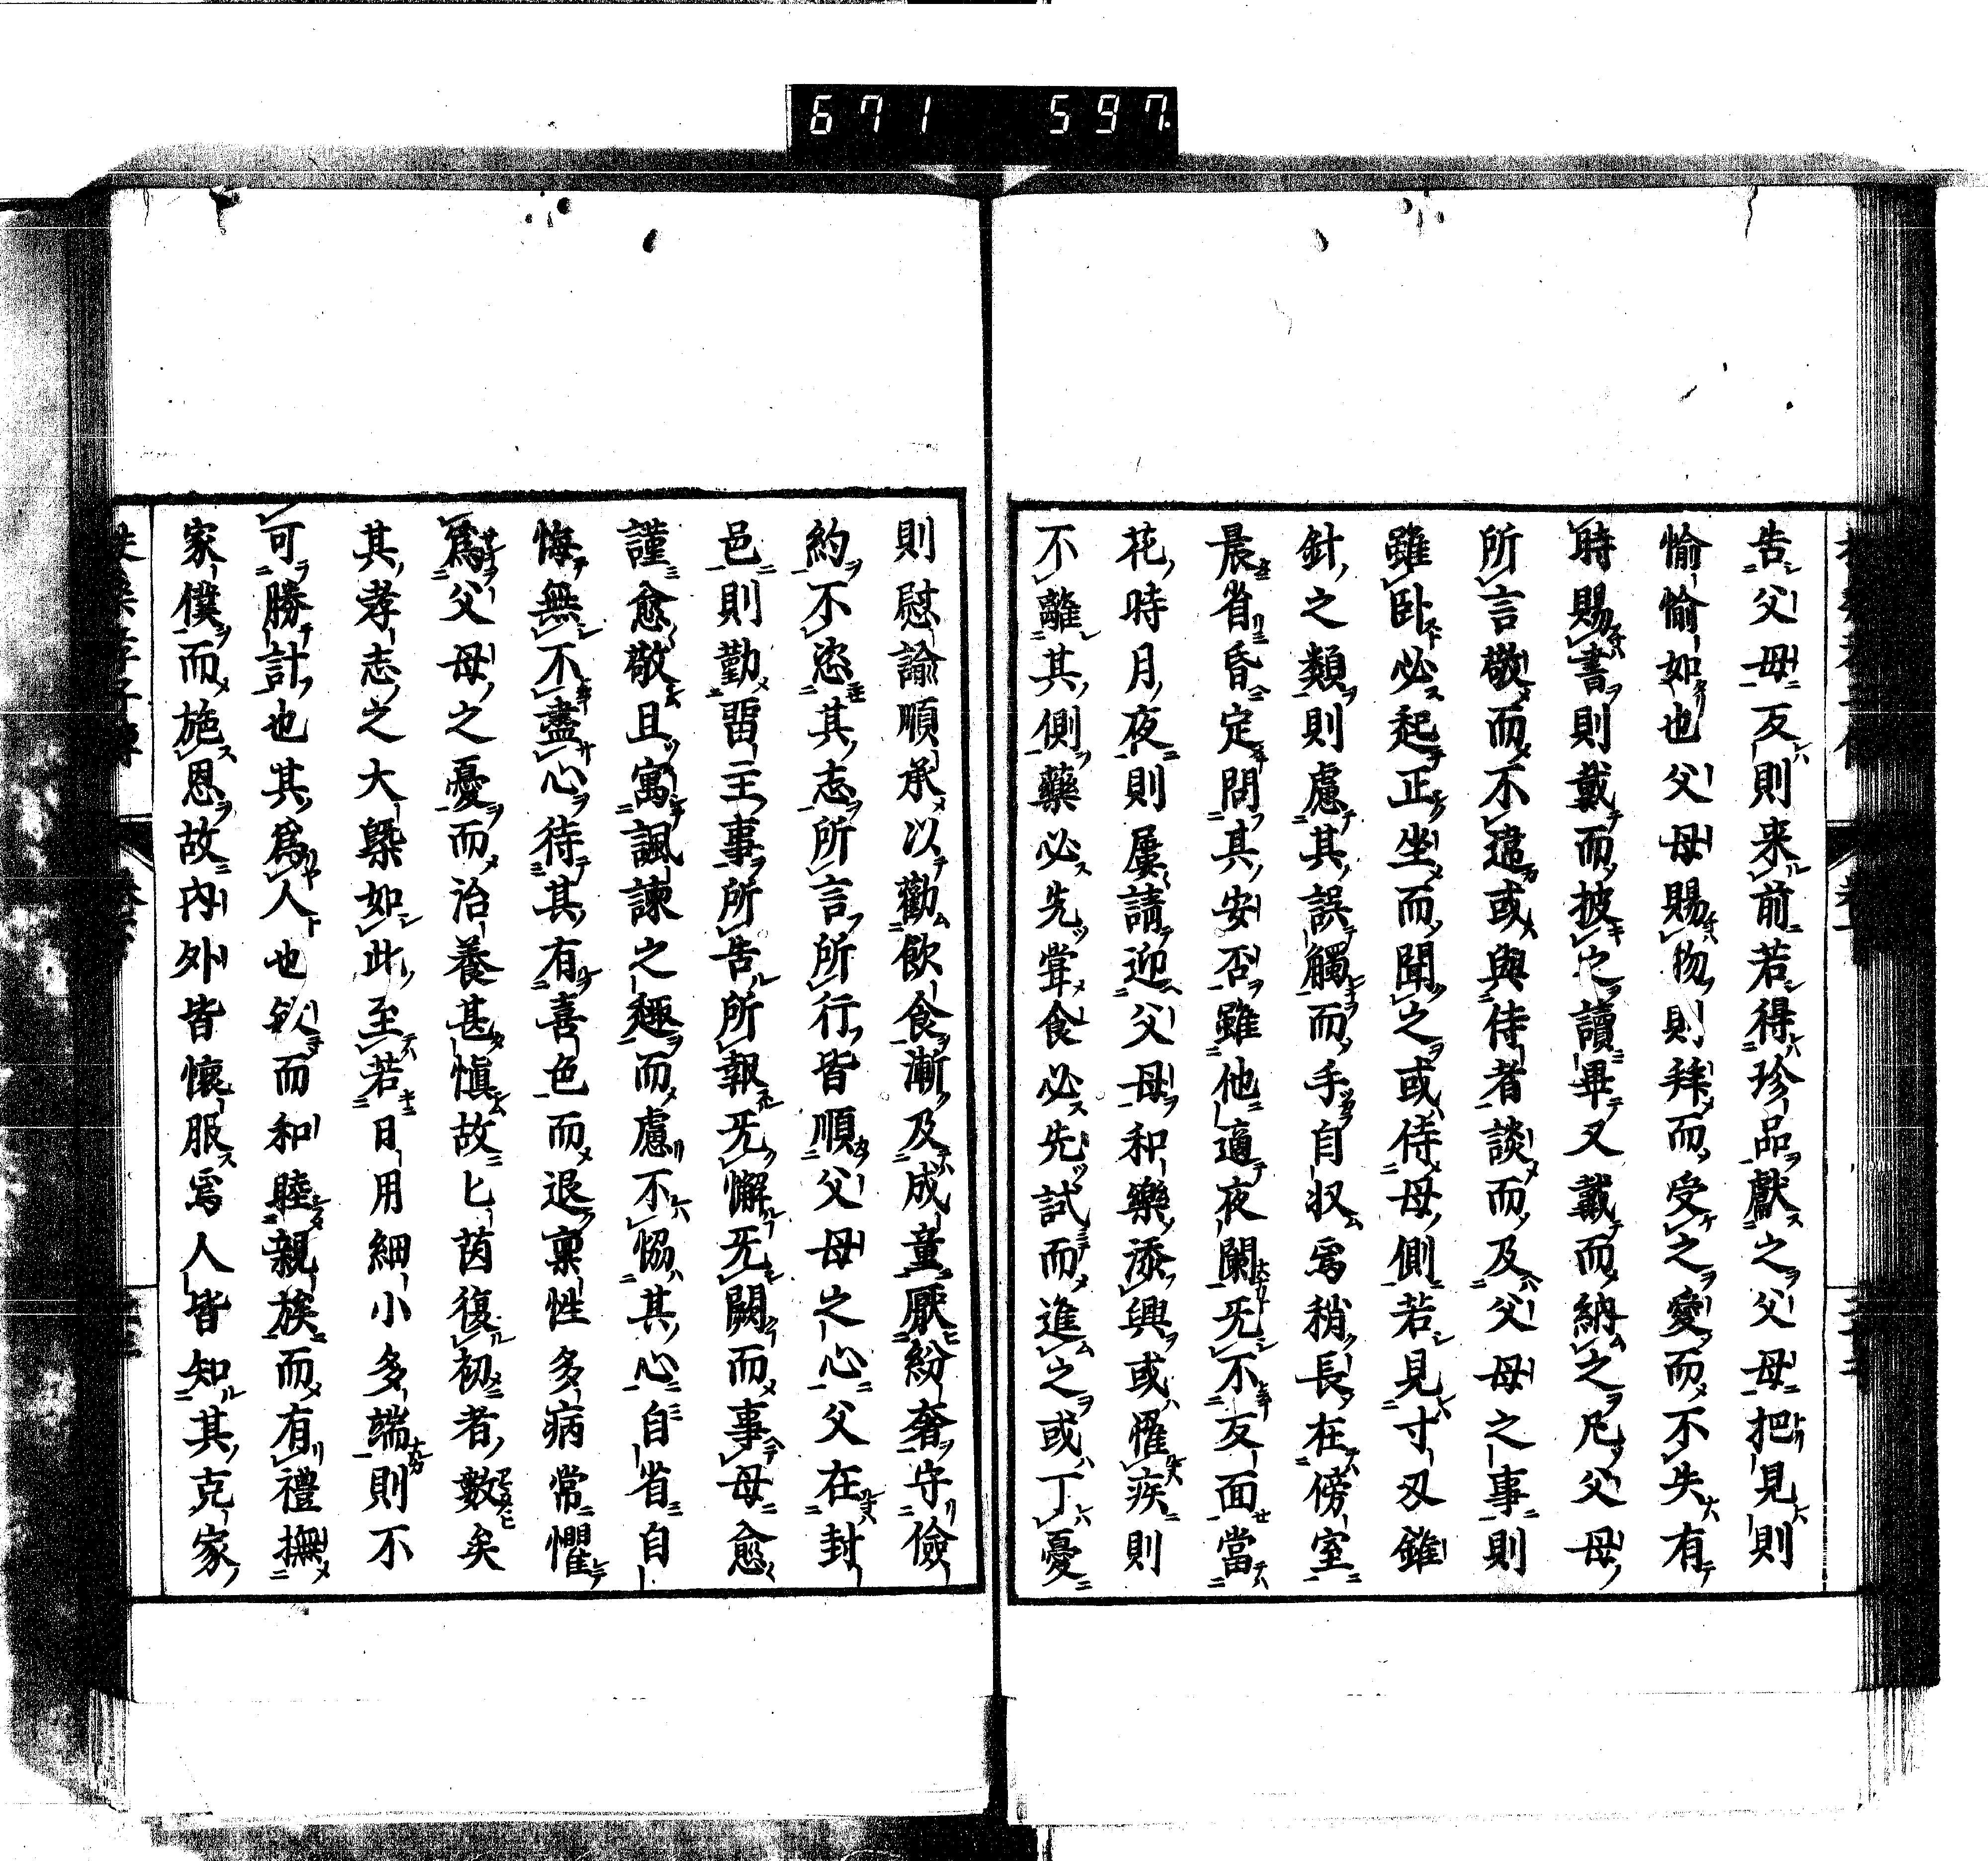 671 597.
告父母反則来前若得珍品獻之父母把見則
愉愉如也父母賜物則拜而受之愛而不失有
時賜書則戴而披之讀畢又戴而納之凡父母
所言敬而不違或與侍者談而及父母之事則
雖臥必起正坐而聞之或侍母側若見寸刃錐
針之類則慮其誤觸而手自収焉稍長在傍室
晨省昏定問其安否雖他適夜闌无不反面當
花時月夜則屢請迎父母和樂添興或罹疾則
不離其側藥必先甞食必先試而進之或丁憂
則慰諭順承以勸飲食漸及成童厭紛奢守儉
約不恣其志所言所行皆順父母之心父在封
邑則勤畱主事所告所報无懈无闕而事母愈
謹愈敬且寓諷諫之趣而慮不恊其心自省自
悔無不盡心待其有喜色而退稟性多病常懼
爲父母之憂而治養甚愼故匕茵復初者數矣
其孝志之大槩如此至若日用細小多端則不
可勝計也其爲人也欽而和睦親族而有禮撫
家僕而施恩故內外皆懷服焉人皆知其克家